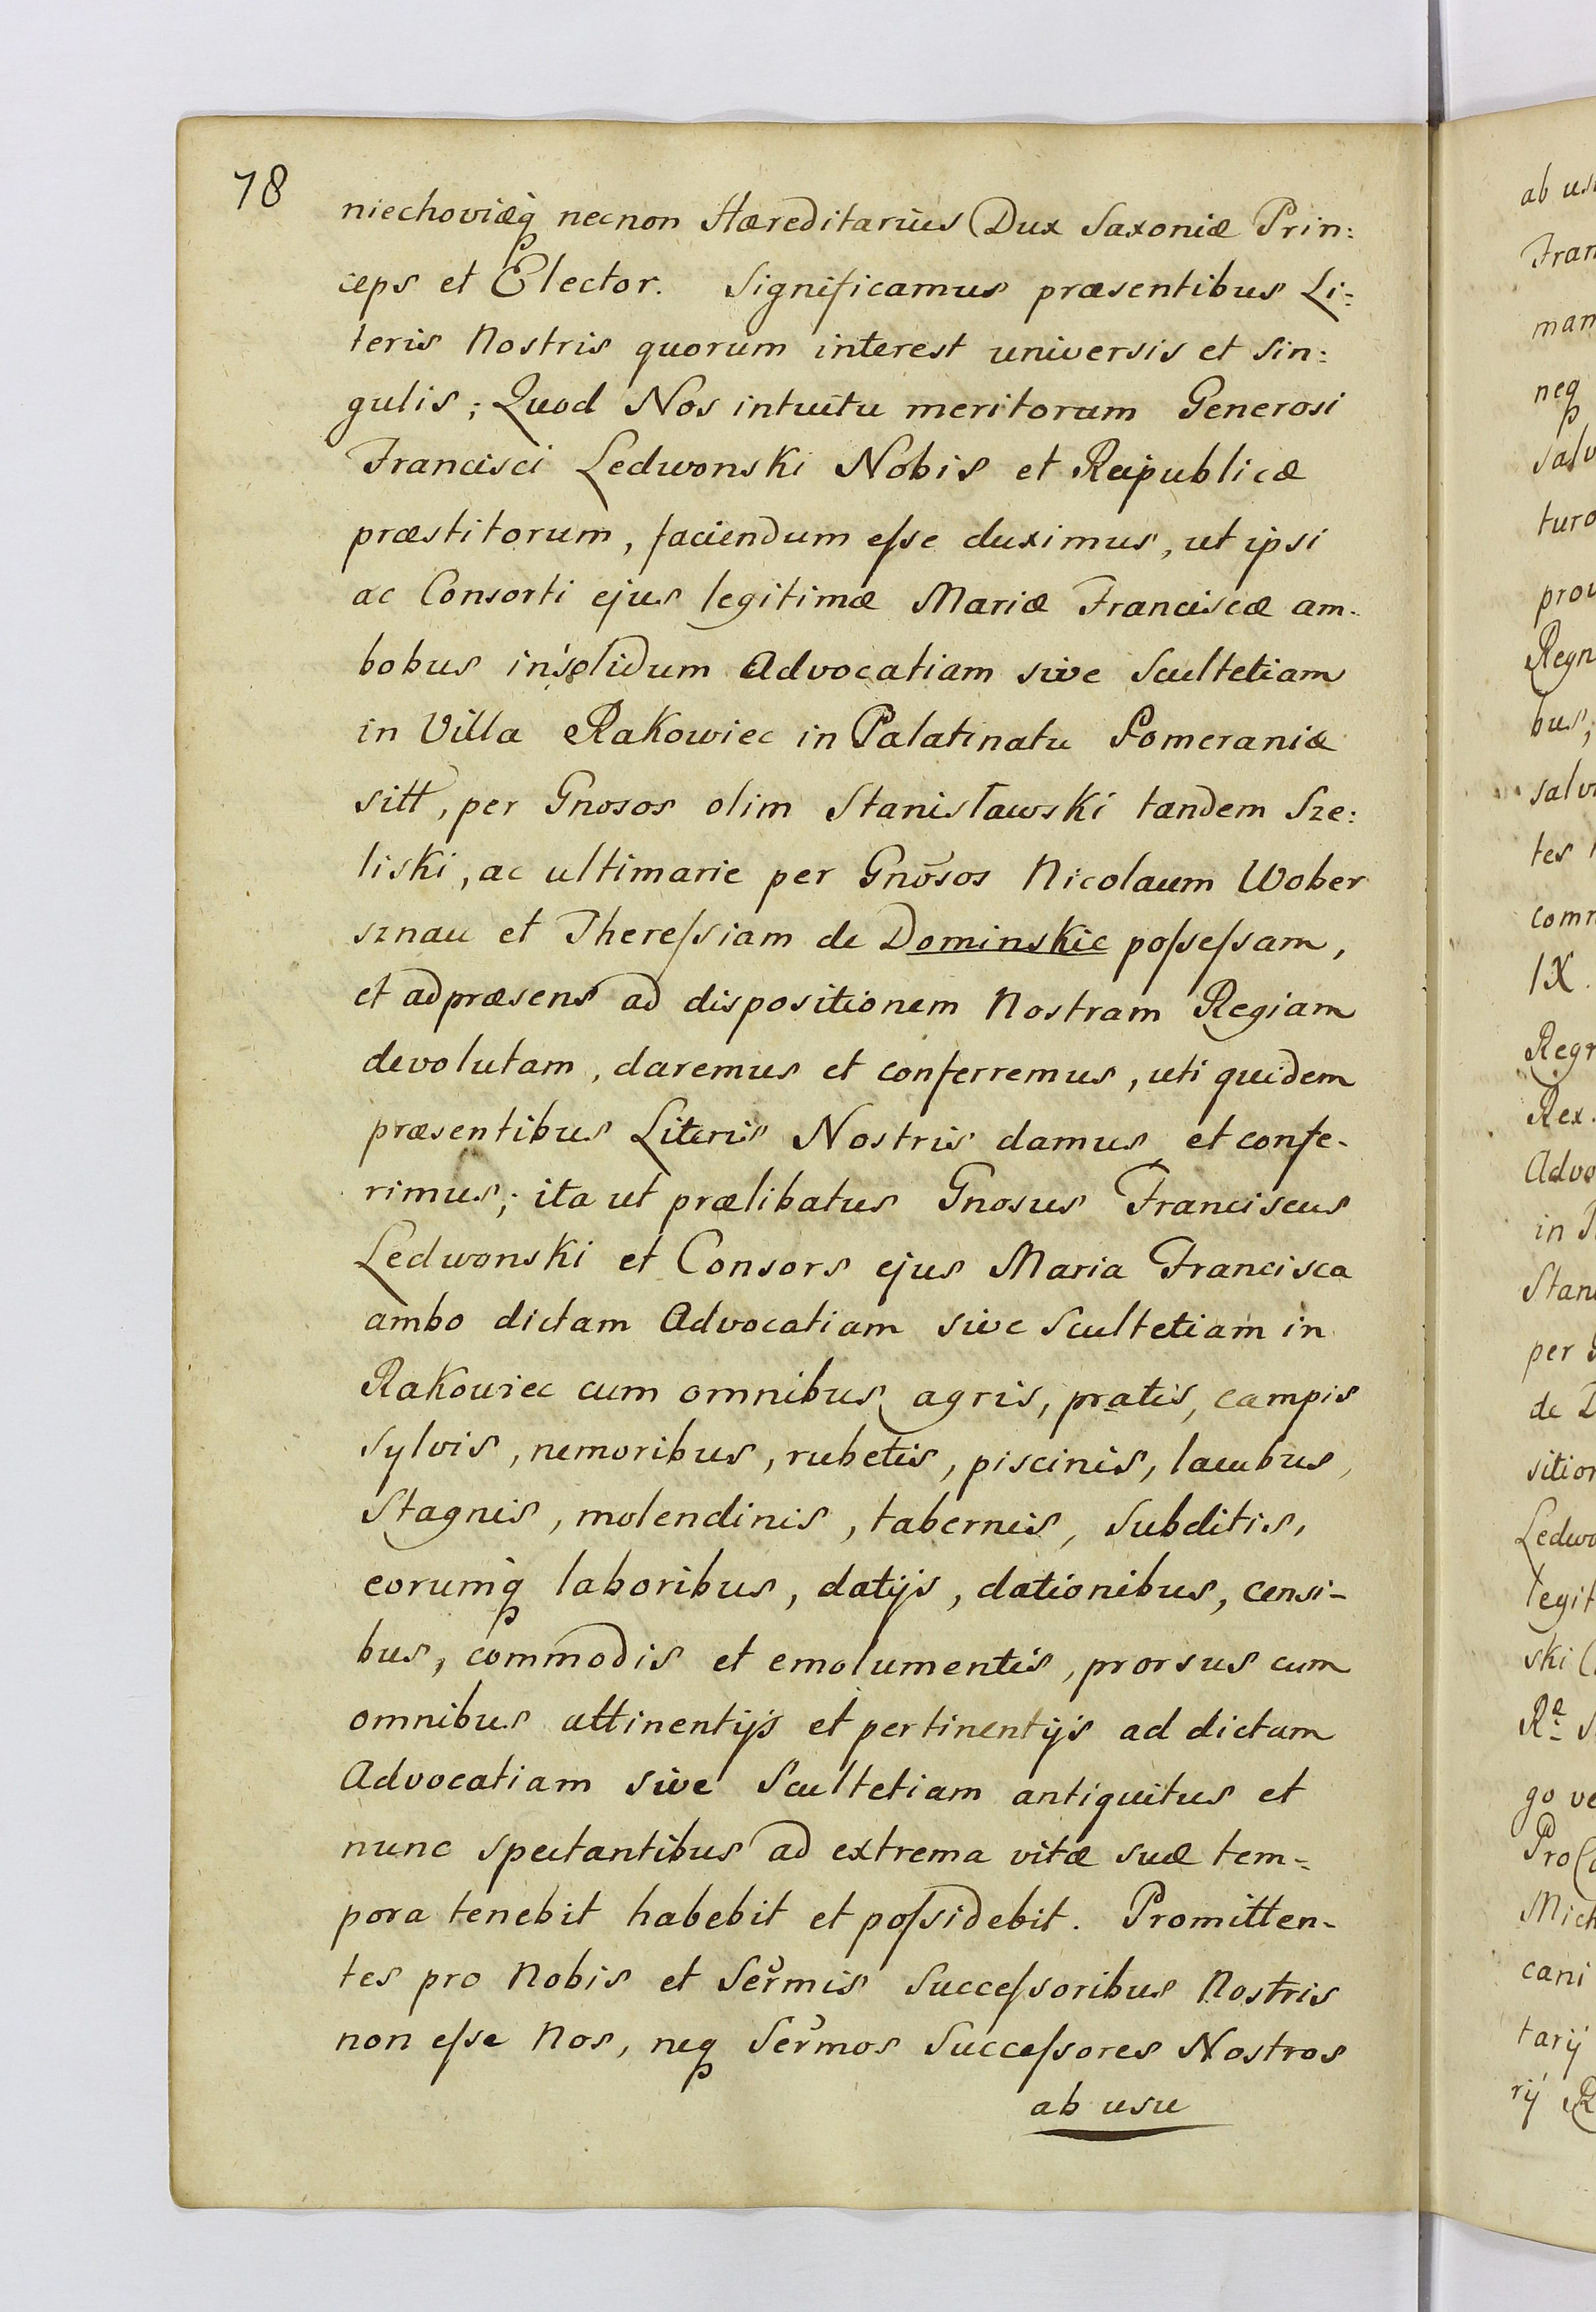 78
niechoviæq̃ necnon Hæreditarius Dux Saxoniæ Prin:
ceps et Elector. Significamus præsentibus Li:
teris Nostris quorum interest universis et sin:
gulis; Quod Nos intuitu meritorum Generosi
Francisci Ledwonski Nobis et Reipublicæ
præstitorum, faciendum eſse duximus, ut ipsi
ac Consorti ejus legitimæ Mariæ Franciscæ am-
bobus insolidum Advocatiam sive Scultetiam
in Villa Rakowiec in Palatinatu Pomeraniæ
sitt, per Gnosos olim Stanisławski tandem Sze:
liski, ac ultimarie per Gnõsos Nicolaum Wober
sznau et Thereſsiam de Dominskie poſseſsam,
et adpræsens ad dispositionem Nostram Regiam
devolutam, daremus et conferremus, uti quidem
præsentibus Literis Nostris damus et confe-
rimus; ita ut prælibatus Gnosus Franciscus
Ledwonski et Consors ejus Maria Francisca
ambo dictam Advocatiam sive Scultetiam in
Rakowiec cum omnibus agris, pratis, campis
sylvis, nemoribus, rubetis, piscinis, lacubus,
Stagnis, molendinis, tabernis, Subditis,
eorumq̃ laboribus, datijs, dationibus, censi-
bus, commodis et emolumentis, prorsus cum
omnibus attinentijs et pertinentijs ad dictam
Advocatiam sive Scultetiam antiquitus et
nunc spectantibus ad extrema vitæ suæ tem-
pora tenebit habebit et poſsidebit. Promitten-
tes pro Nobis et Sermis Succeſsoribus Nostris
non eſse Nos, neq̃ Sermos Succeſsores Nostros
ab usu
ab us
Fran
man
neq̃
salv
turo
prov
Regn
bus,
salv
tes
comm
IX.
Regn
Rex.
Advo
in P
Stan
per G
de D
sition
Ledwo
legit
ski C
go ve
Mich
cani
tarij
rij R